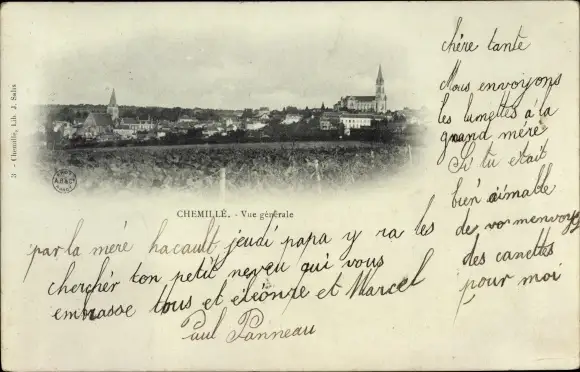 chère tante
Nous envoyons
les lunettes à la
grand mère
Si tu était
bien aimable
de vo menvoyé
des canettes
pour moi
par la mère hacault jeudi papa y ra les
chercher ton petit neveu qui vous
embrasse tous et éléonre et Marcel
Paul Panneau
CHEMILLÉ. - Vue générale
3 - Chemillé, Lib. J. Salis